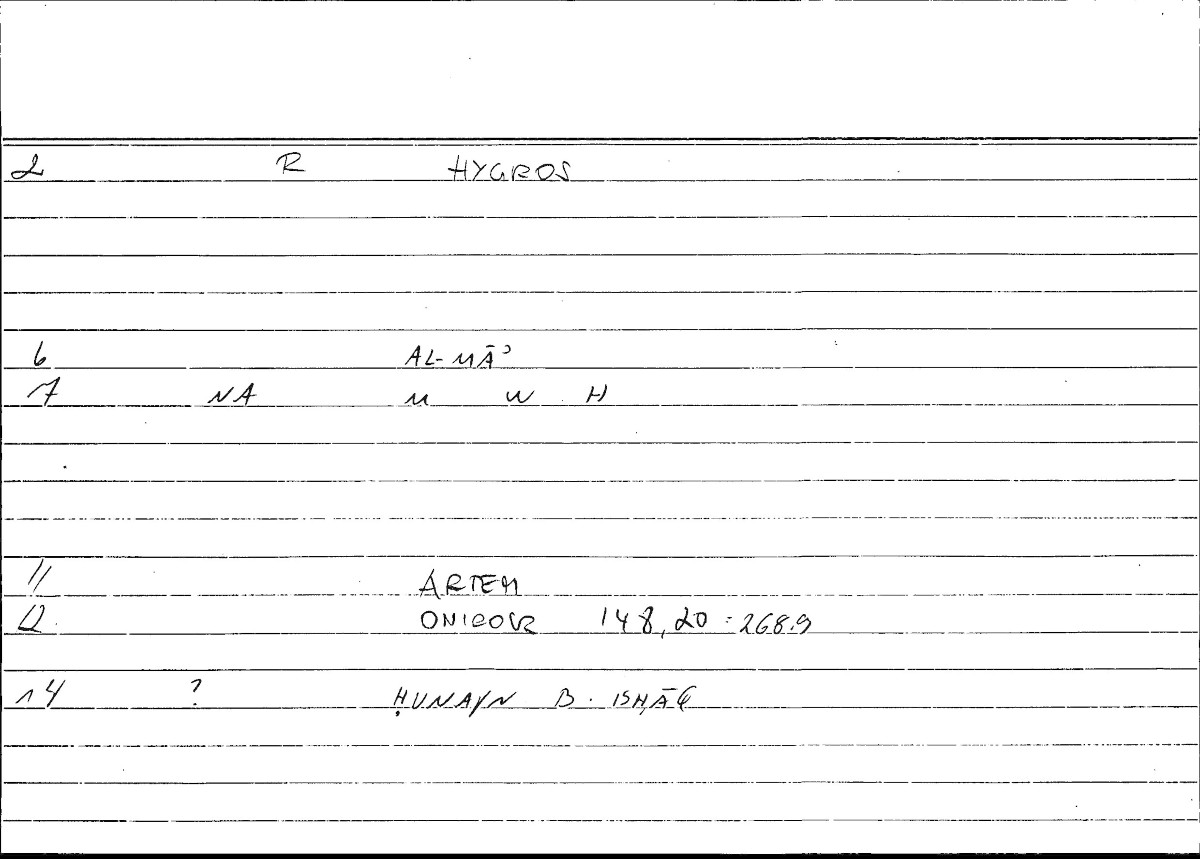 2 R HYGROS
6 AL-MĀʾ
7 NA M W H
11 ARTEM
12 ONIROCR 148,20 : 268.9
14 ? ḤUNAYN B. ISḤĀQ